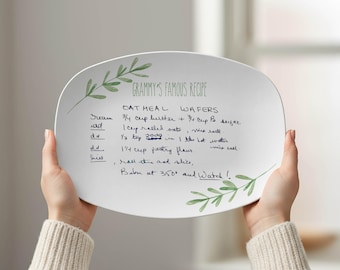 GRAMMY'S FAMOUS RECIPE
OATMEAL WAFERS
Cream 3/4 cup butter + 3/4 cup Br sugar.
add 1 cup rolled oats, mix well
do. 1/2 tsp in 1 tbl hot water
mix well
do. 1 1/4 cup pastry flour
, roll thin and slice.
Bake at 350° and Watch!